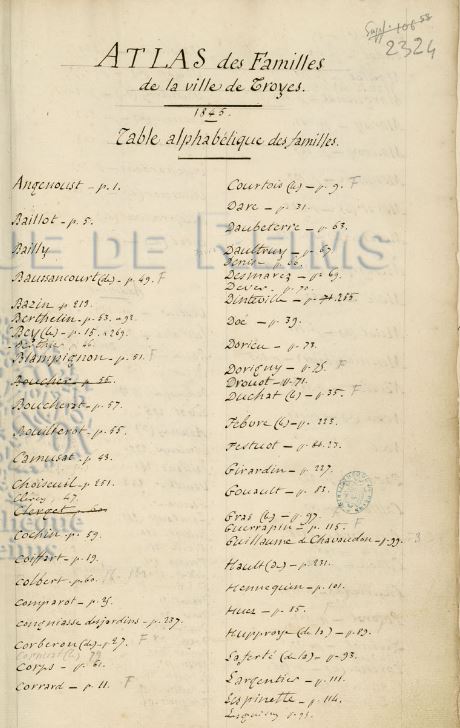 Suppl. 
2324
ATLAS des Familles
de la ville de Troyes.
1845.
Table alphabétique des familles.
Angenoust - p. 1.
Baillot - p. 5.
Bailly
Baussancourt (de) - p. 49. F
Bazin p. 219.
Berthelin - p. 53. 
Bey (le) - p. 15. 269.
Blampignon - p. 51. F
Boucher - p. 55.
Boucherat - p. 57.
Boutherot - p. 55.
Camusat - p. 43.
Choiseuil - p. 251.
47.
Clerget
Cochin - p. 59.
Coiffart - p. 19.
Colbert - p. 60.
Comparot - p. 35.
Congniasse desjardins - p. 237.
Corberon (de) - p. 27. F
Corps - p. 61.
Corrard - p. 11. F
Courtois (le) - p. 9. F
Dare - p. 31.
Daubeterre - p. 63.
Daultruy - p. 67
Denis
Desmarez - p. 69.
Deves. p. 70.
Dinteville - p. 255.
Doé - p. 39.
Dorieu - p. 73.
Dorigny - p. 75. F
Drouot - p. 71.
Duchat (le) - p. 35. F
Febure (le) - p. 223.
Festuot - p. 23.
Girardin - p. 227.
Gouault - p. 83.
Gras (le) - p. 97. F
Guerrapin - p. 115. F
Guillaume de Chavaudon - p. 99.
Hault (de) - p. 231.
Hennequin - p. 101.
Huez - p. 15. F
Hupproye (de la) - p. 89.
Laferté (de la) - p. 93.
Largentier - p. 111.
Lespinette - p. 114.
UE DE REIMS